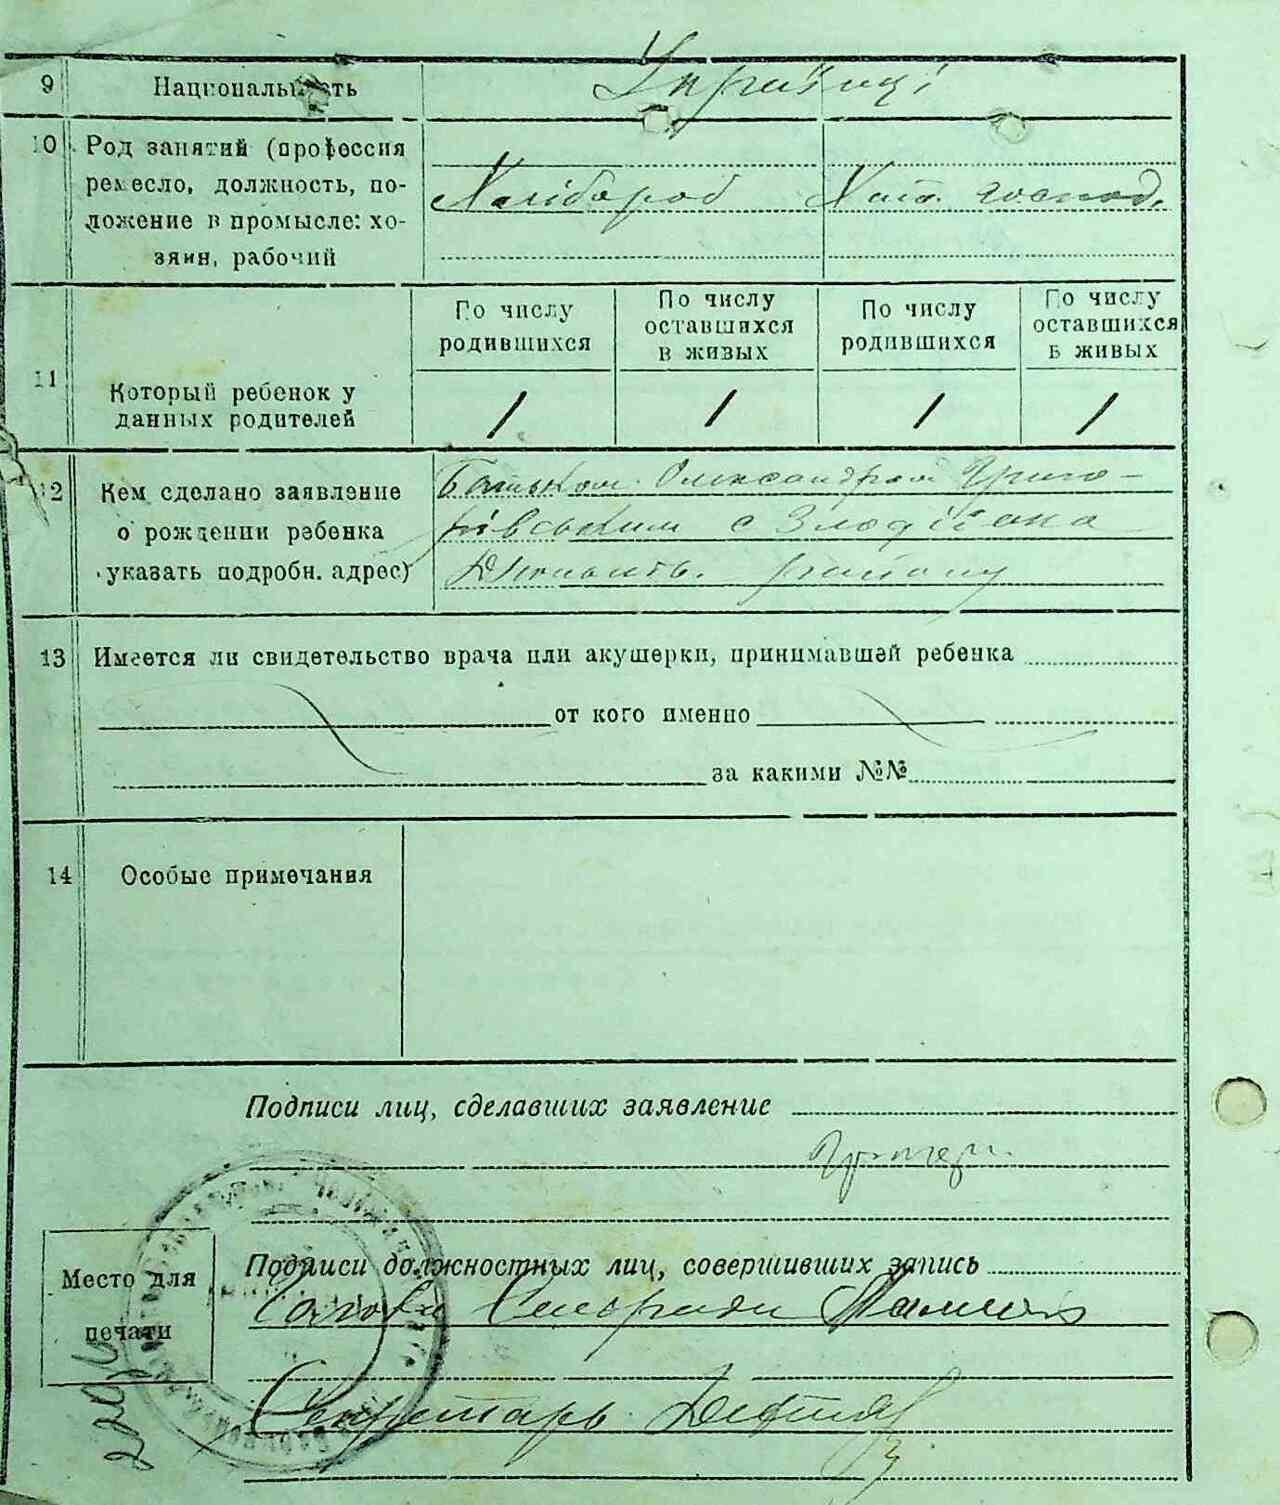 9 Национальность Українці
10 Род занятий (профессия
ремесло, должность, по-
ложение в промысле: хо-
зяин, рабочий
Хлібороб Хатн. господ.
По числу родившихся
По числу оставшихся в живых
По числу родившихся
По числу оставшихся в живых
11 Который ребенок у
данных родителей
1 1 1 1
12 Кем сделано заявление
о рождении ребенка
указать подробн. адрес)
Батьком Олександром Григо-
рівським с Злодіївка
району
13 Имеется ли свидетельство врача или акушерки, принимавшей ребенка
от кого именно
за какими №№
14 Особые примечания
Подписи лиц, сделавших заявление
Место для
печати
Подписи должностных лиц, совершивших запись
Голова Сільради
Секретарь